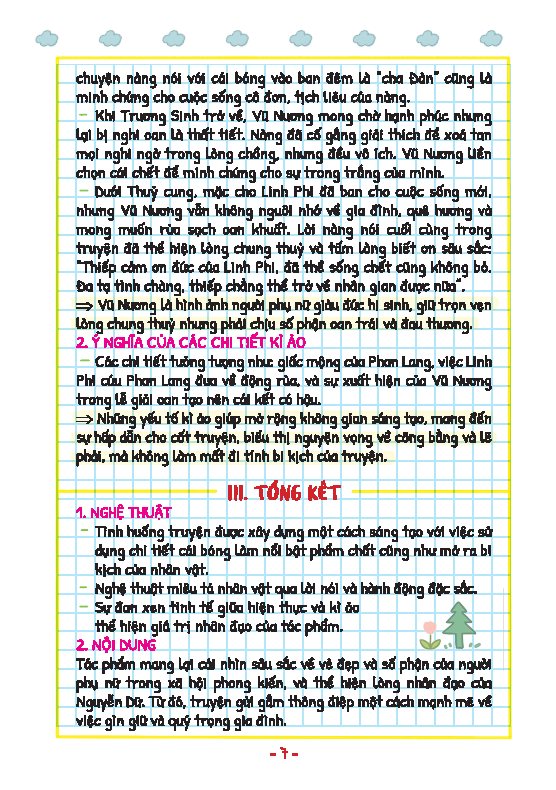 chuyện nàng nói với cái bóng vào ban đêm là "cha Đản" cũng là
minh chứng cho cuộc sống cô đơn, tịch liêu của nàng.
- Khi Trương Sinh trở về, Vũ Nương mong chờ hạnh phúc nhưng
lại bị nghi oan là thất tiết. Nàng đã cố gắng giải thích để xoá tan
mọi nghi ngờ trong lòng chồng, nhưng đều vô ích. Vũ Nương liền
chọn cái chết để minh chứng cho sự trong trắng của mình.
- Dưới Thuỷ cung, mặc cho Linh Phi đã ban cho cuộc sống mới,
nhưng Vũ Nương vẫn không nguôi nhớ về gia đình, quê hương và
mong muốn rửa sạch oan khuất. Lời nàng nói cuối cùng trong
truyện đã thể hiện lòng chung thuỷ và tấm lòng biết ơn sâu sắc:
"Thiếp cảm ơn đức của Linh Phi, đã thề sống chết cũng không bỏ.
Đa tạ tình chàng, thiếp chẳng thể trở về nhân gian được nữa".
⇒ Vũ Nương là hình ảnh người phụ nữ giàu đức hi sinh, giữ trọn vẹn
lòng chung thuỷ nhưng phải chịu số phận oan trái và đau thương.
2. Ý NGHĨA CỦA CÁC CHI TIẾT KÌ ẢO
- Các chi tiết tưởng tượng như: giấc mộng của Phan Lang, việc Linh
Phi cứu Phan Lang đưa về động rùa, và sự xuất hiện của Vũ Nương
trong lễ giải oan tạo nên cái kết có hậu.
⇒ Những yếu tố kì ảo giúp mở rộng không gian sáng tạo, mang đến
sự hấp dẫn cho cốt truyện, biểu thị nguyện vọng về công bằng và lẽ
phải, mà không làm mất đi tính bi kịch của truyện.
III. TỔNG KẾT
1. NGHỆ THUẬT
- Tình huống truyện được xây dựng một cách sáng tạo với việc sử
dụng chi tiết cái bóng làm nổi bật phẩm chất cũng như mở ra bi
kịch của nhân vật.
- Nghệ thuật miêu tả nhân vật qua lời nói và hành động đặc sắc.
- Sự đan xen tinh tế giữa hiện thực và kì ảo
thể hiện giá trị nhân đạo của tác phẩm.
2. NỘI DUNG
Tác phẩm mang lại cái nhìn sâu sắc về vẻ đẹp và số phận của người
phụ nữ trong xã hội phong kiến, và thể hiện lòng nhân đạo của
Nguyễn Dữ. Từ đó, truyện gửi gắm thông điệp một cách mạnh mẽ về
việc gìn giữ và quý trọng gia đình.
- 7 -